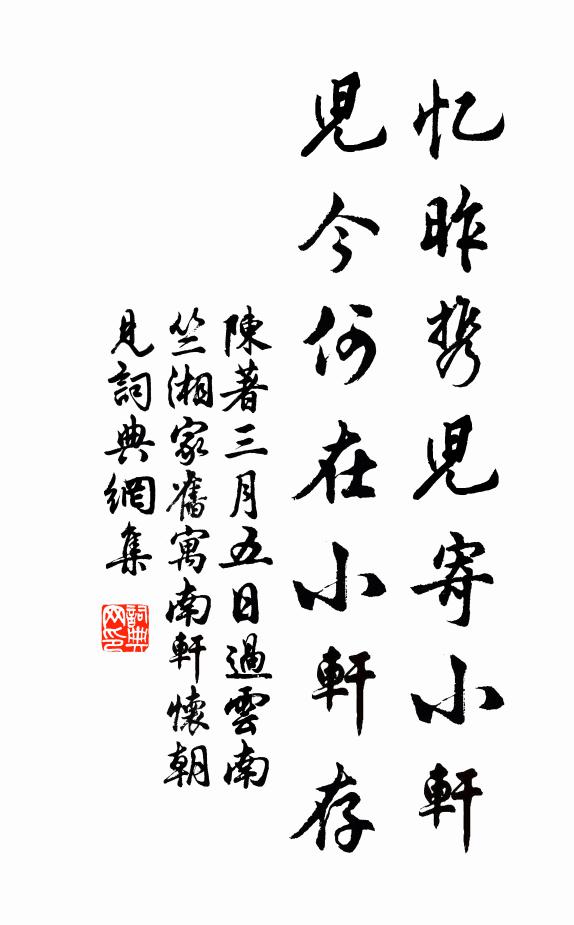 忆昨携児寄小軒
児今何在小軒存
陳著三月五日過雲南
竺湘家舊寓南軒懷朝
児詞典網集
詞典网印